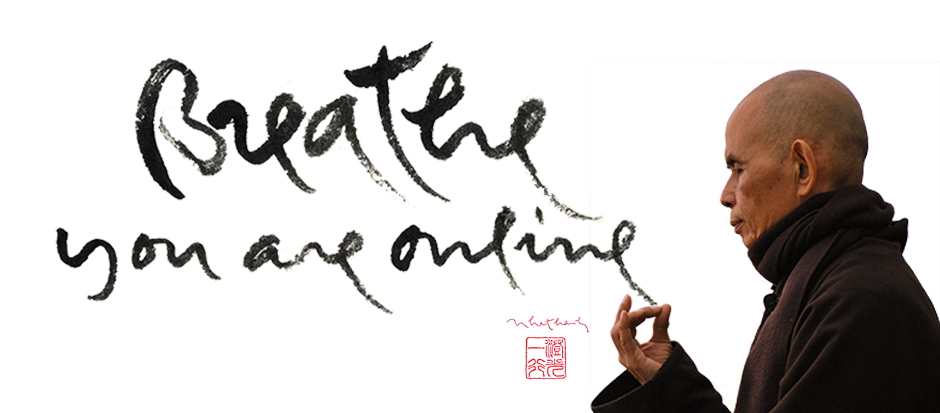 Breathe
you are online
nhathanh
澄光
一行